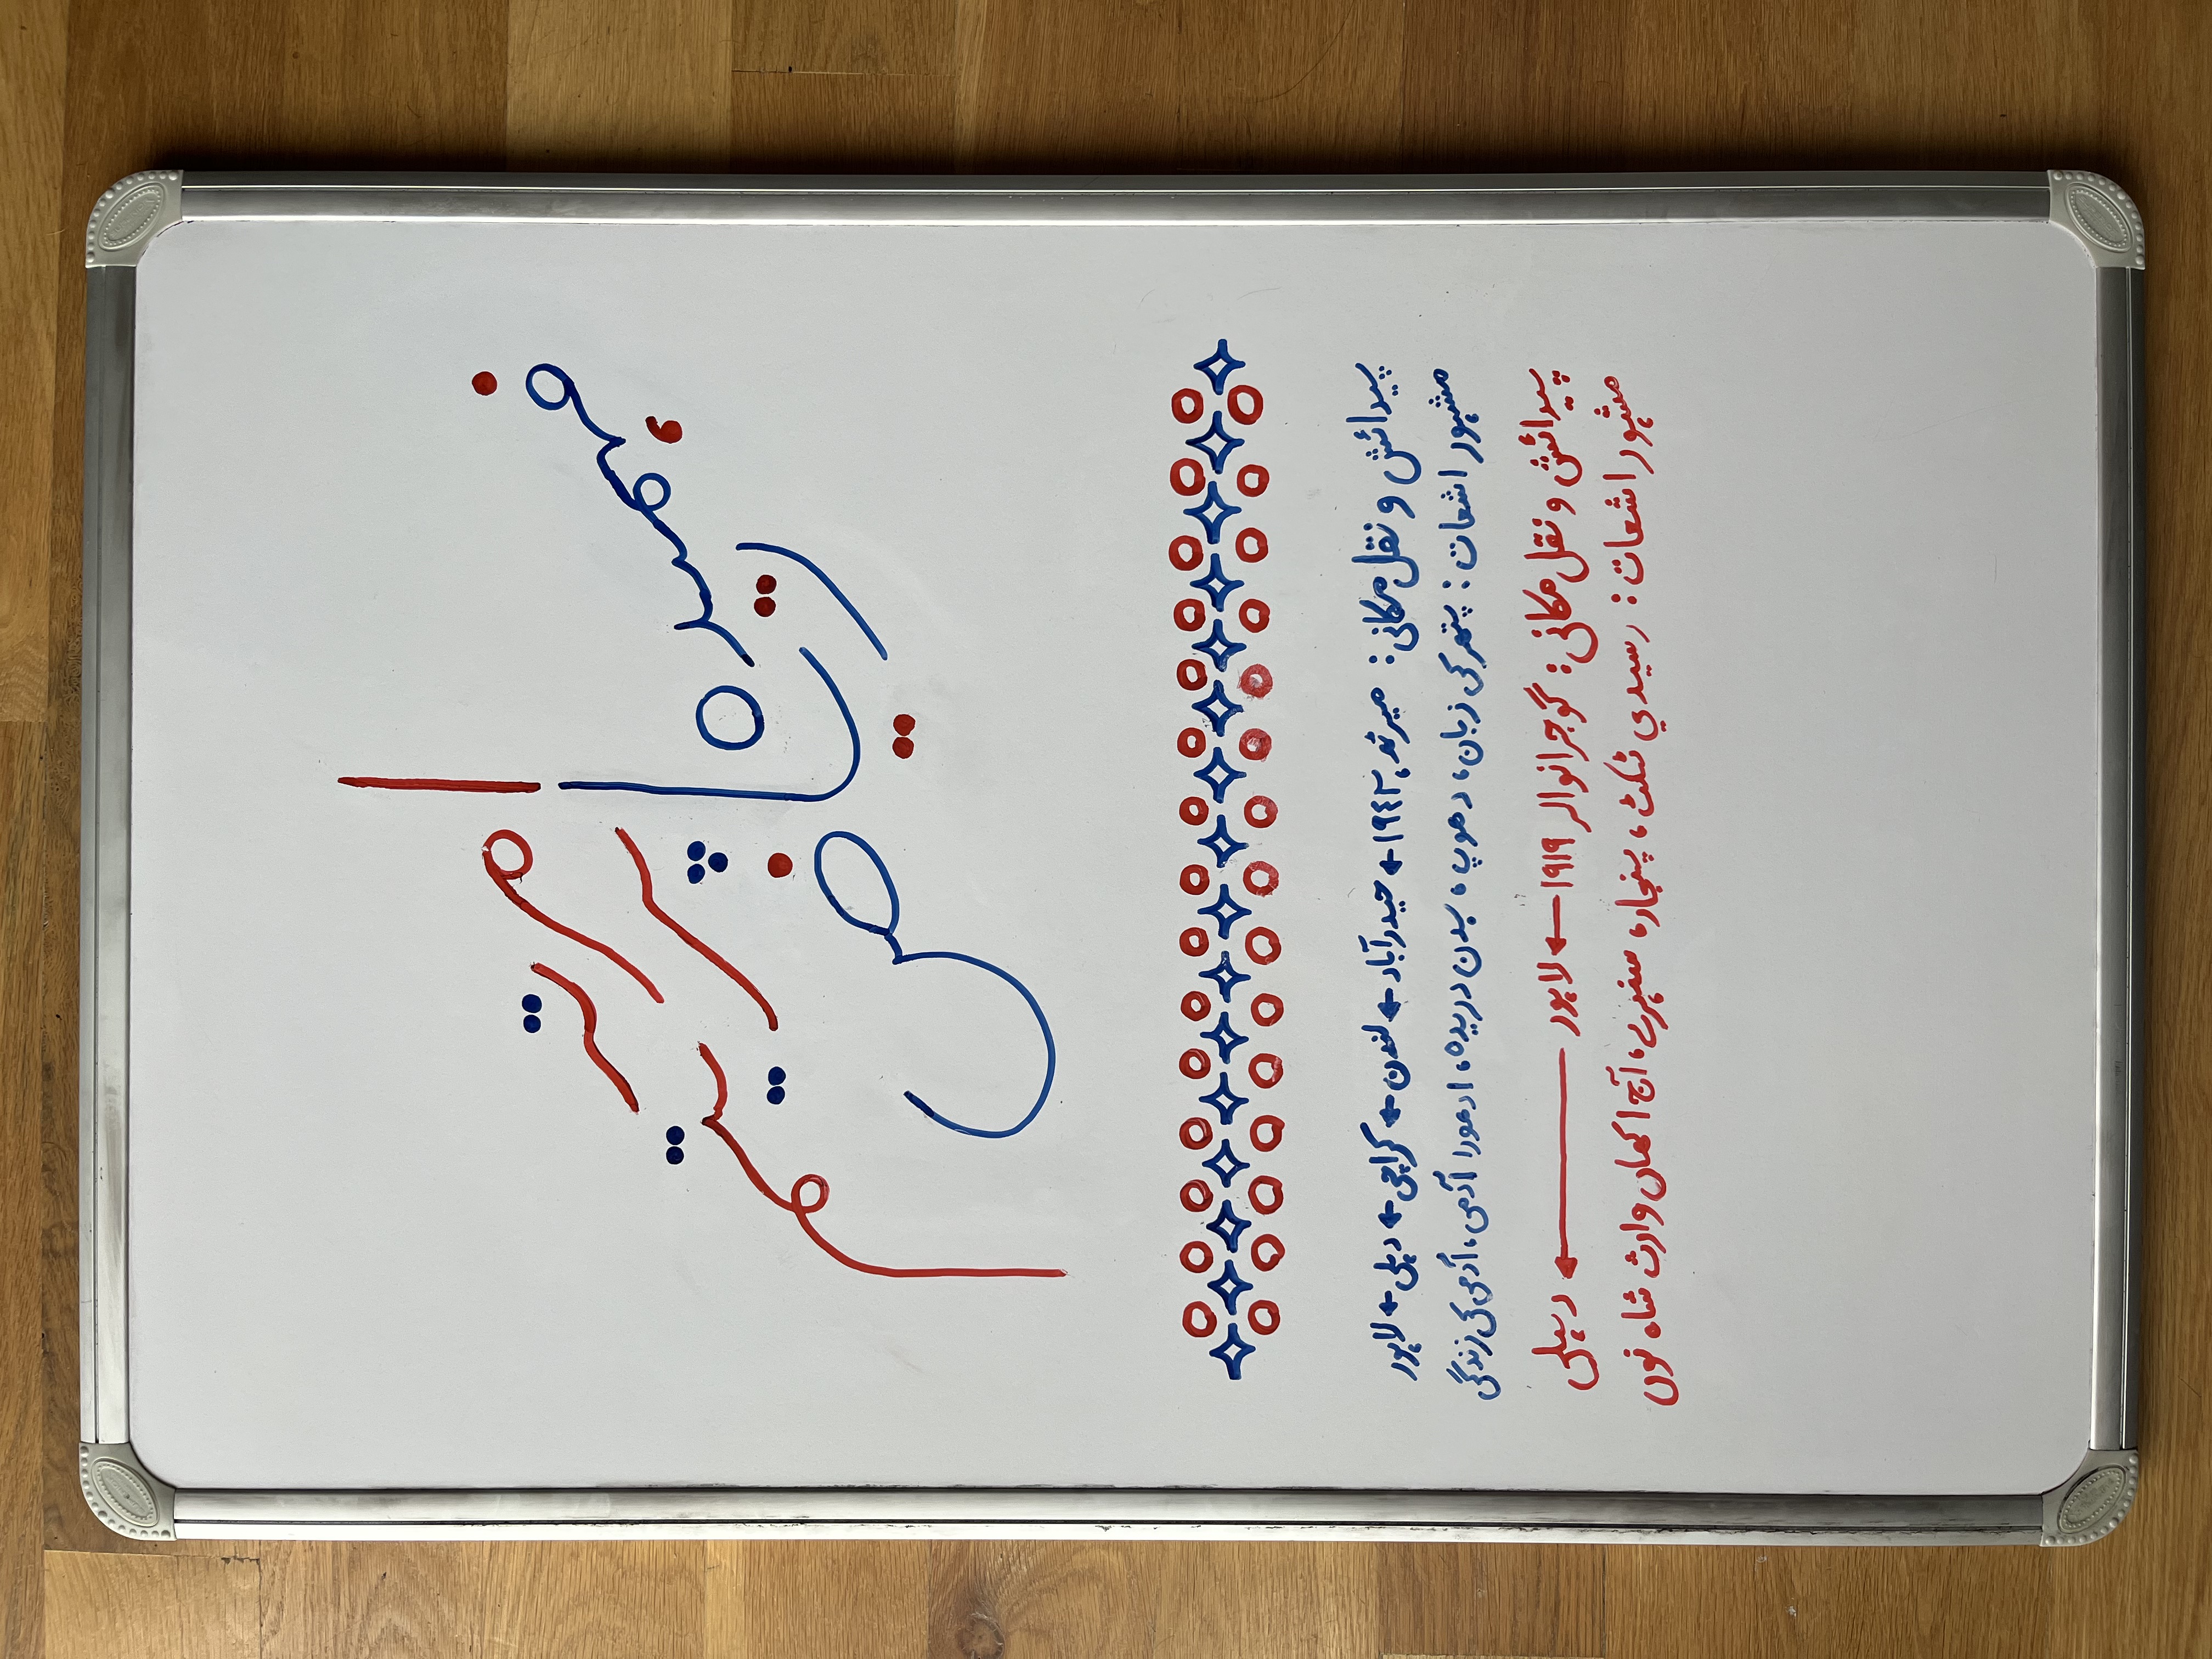 فہمیدہ ریاض
امرتر پریتم
پیدائش و نقل مکانی: میرٹھ ۱۹٤۲ ← حیدرآباد ← لندن ← کراچی ← دہلی ← لاہور
مشہور اشعات: پتھر کی زبان، دھوپ، بدن دریدہ، ادھورا آدمی، آدمی کی زندگی
پیدائش و نقل مکانی: گوجرانوالہ ۱۹۱۹ ← لاہور ← دہلی
مشہور اشعات: رسیدي ٹکٹ، پنجار، سنہرے، آج اکھاں وارث شاہ نوں